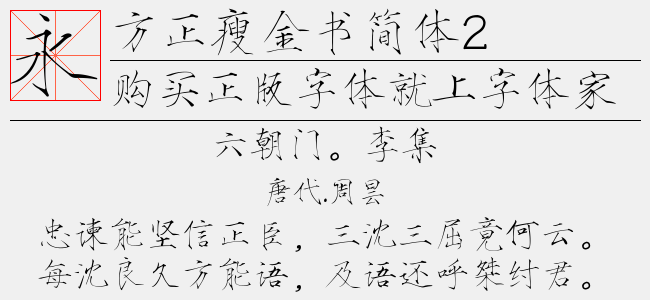 永
方正瘦金书简体2
购买正版字体就上字体家
六朝门。李集
唐代.周昙
忠谏能坚信正臣，三沈三屈竟何云。
每沈良久方能语，及语还呼桀纣君。